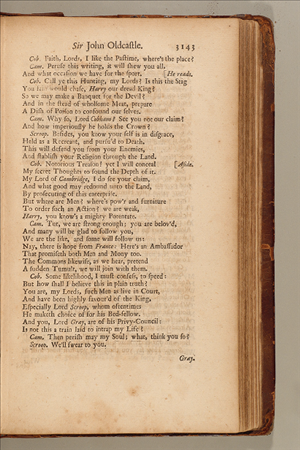 Sir John Oldcastle. 3143
Cob. Faith, Lords, I like the Pastime, where's the place?
Cam. Peruse this writing, it will shew you all.
And what occasion we have for the sport. [He reads.
Cob. Call ye this Hunting, my Lords? Is this the Stag
You fain would chase, Harry our dread King?
So we may make a Banquet for the Devil?
And in the stead of wholsome Meat, prepare
A Dish of Poison to confound our selves.
Cam. Why so, Lord Cobham? See you not our claim?
And how imperiously he holds the Crown?
Scroop. Besides, you know your self is in disgrace,
Held as a Recreant, and pursu'd to Death.
This will defend you from your Enemies,
And stablish your Religion through the Land.
Cob. Notorious Treason! yet I will conceal [Aside.
My secret Thoughts to sound the Depth of it.
My Lord of Cambridge, I do see your claim,
And what good may redound unto the Land,
By prosecuting of this enterprise.
But where are Men? where's pow'r and furniture
To order such an Action? we are weak,
Harry, you know's a mighty Potentate.
Cam. Tut, we are strong enough; you are belov'd,
And many will be glad to follow you,
We are the like, and some will follow us:
Nay, there is hope from France: Here's an Ambassador
That promiseth both Men and Mony too.
The Commons likewise, as we hear, pretend
A sudden Tumult, we will join with them.
Cob. Some likelihood, I must confess, to speed:
But how shall I believe this in plain truth?
You are, my Lords, such Men as live in Court,
And have been highly favour'd of the King,
Especially Lord Scroop, whom oftentimes
He maketh choice of for his Bed-fellow.
And you, Lord Gray, are of his Privy-Council:
Is not this a train laid to intrap my Life?
Cam. Then perish may my Soul; what, think you so?
Scroop. We'll swear to you.
Gray.